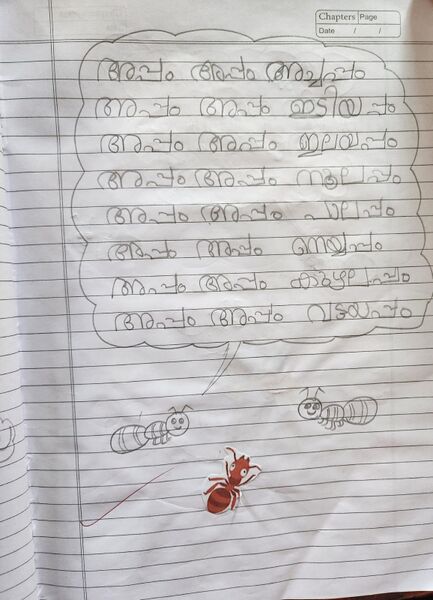 Chapters Page
Date / /
അപ്പം അപ്പം അച്ചപ്പം
അപ്പം അപ്പം ഇടിയപ്പം
അപ്പം അപ്പം ഇലയപ്പം
അപ്പം അപ്പം നൂലപ്പം
അപ്പം അപ്പം പാലപ്പം
അപ്പം അപ്പം നെയ്യപ്പം
അപ്പം അപ്പം കുഴലപ്പം
അപ്പം അപ്പം വട്ടയപ്പം